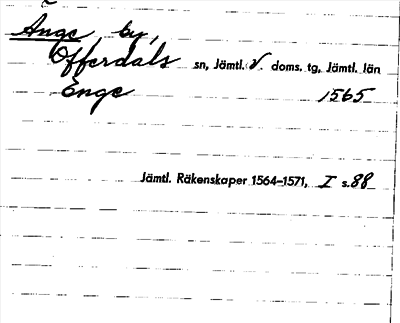 Ånge by,
Offerdals sn, Jämtl. v. doms. tg, Jämtl. län
Enge 1565
Jämtl. Räkenskaper 1564–1571, I s. 88